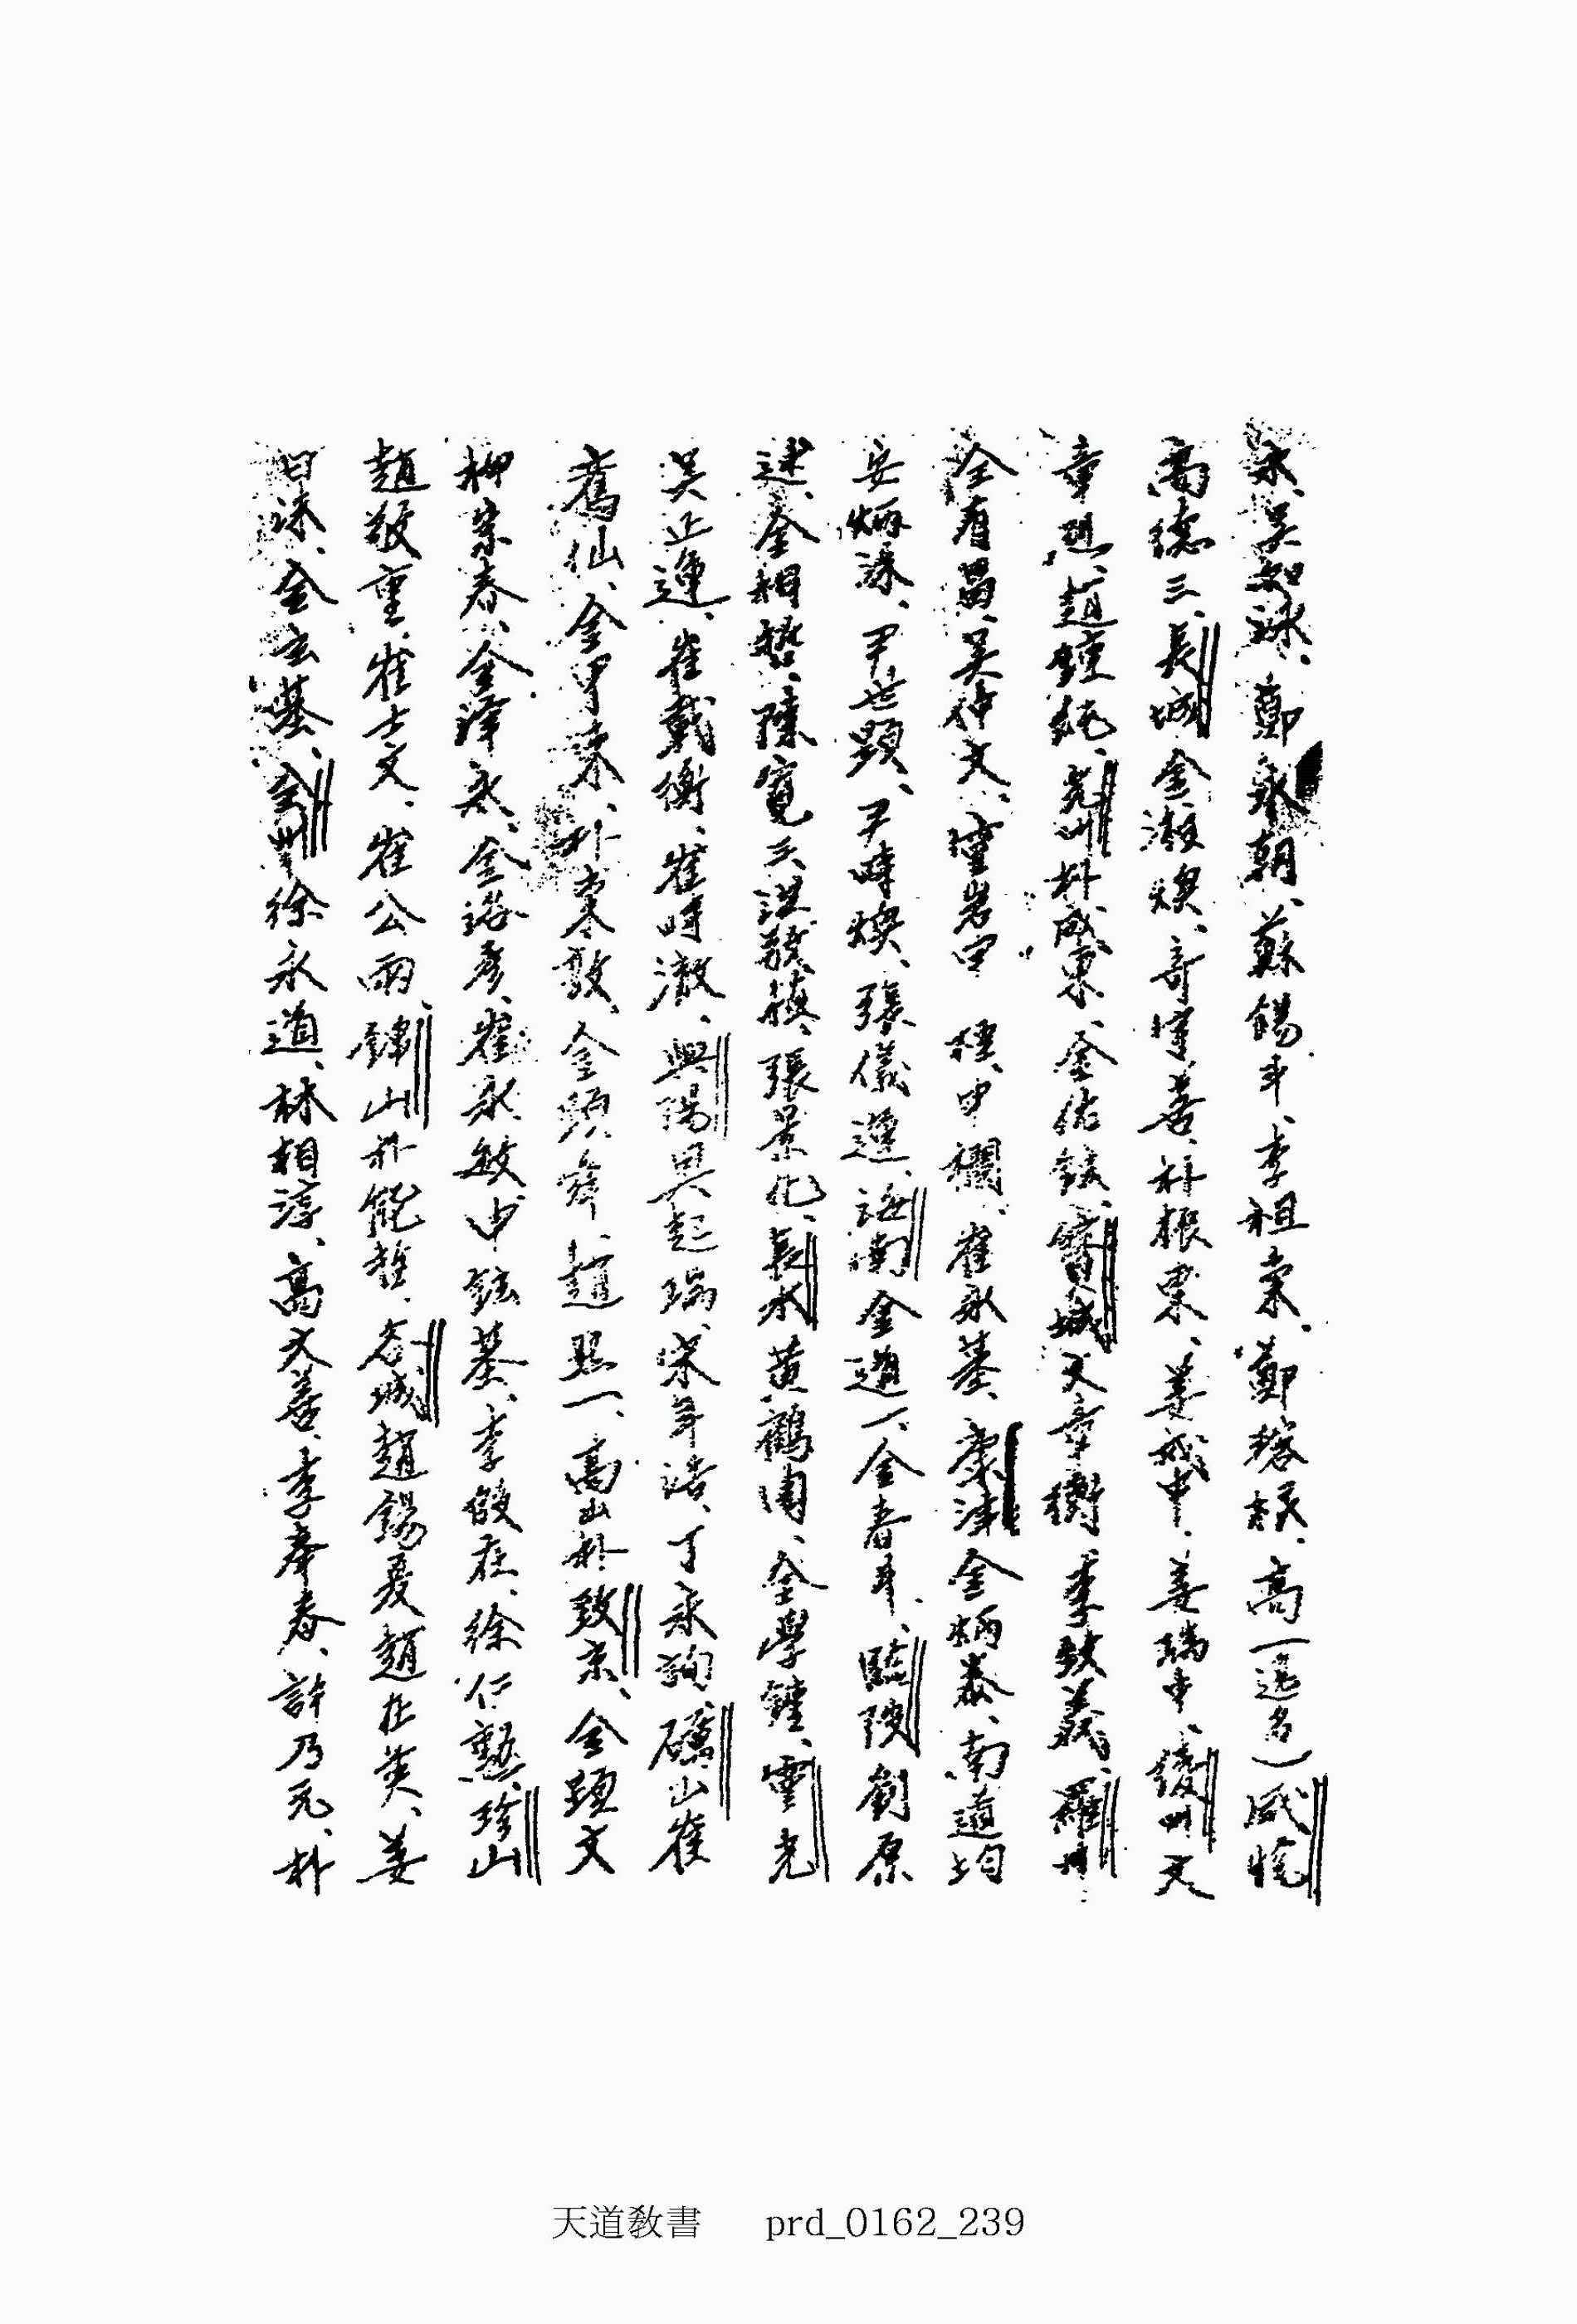 永、吳知泳、鄭永朝、蘇錫斗、李祖秉、鄭榕根、高(逸名)咸悅
高德三、長城金漱煥、奇宇善、朴振東、姜戒中、姜瑞中、綾州文
章烈、趙鍾純、光州朴成東、金佑鉉、寶城文章衡、李致義、羅州
全有昌、吳仲文、崔永基、康津金炳泰、南道均
安炳洙、尹世顯、尹時煥、張儀運、海南金道一、金春斗、臨陂劉原
述、金相哲、陳寬三、洪敬、張景化、長水黃鶴周、金學鍾、靈光
吳正運、崔戴衡、崔時澈、興陽吳起瑞、宋年浩、丁永詢、礪山崔
鳳仙、金甲東、朴東敦、金顯舜、趙熙一、高山朴致京、金顯文
柳宗春、金澤永、金洛彥、崔永敏、申鉉基、李儆在、徐仁勳、珍山
趙敬重、崔士文、崔公雨、錦山朴能哲、谷城趙錫夏、趙在英、姜
日洙、金玄基、全州徐永道、林相淳、高文善、李奉春、許乃元、朴
天道敎書 prd_0162_239